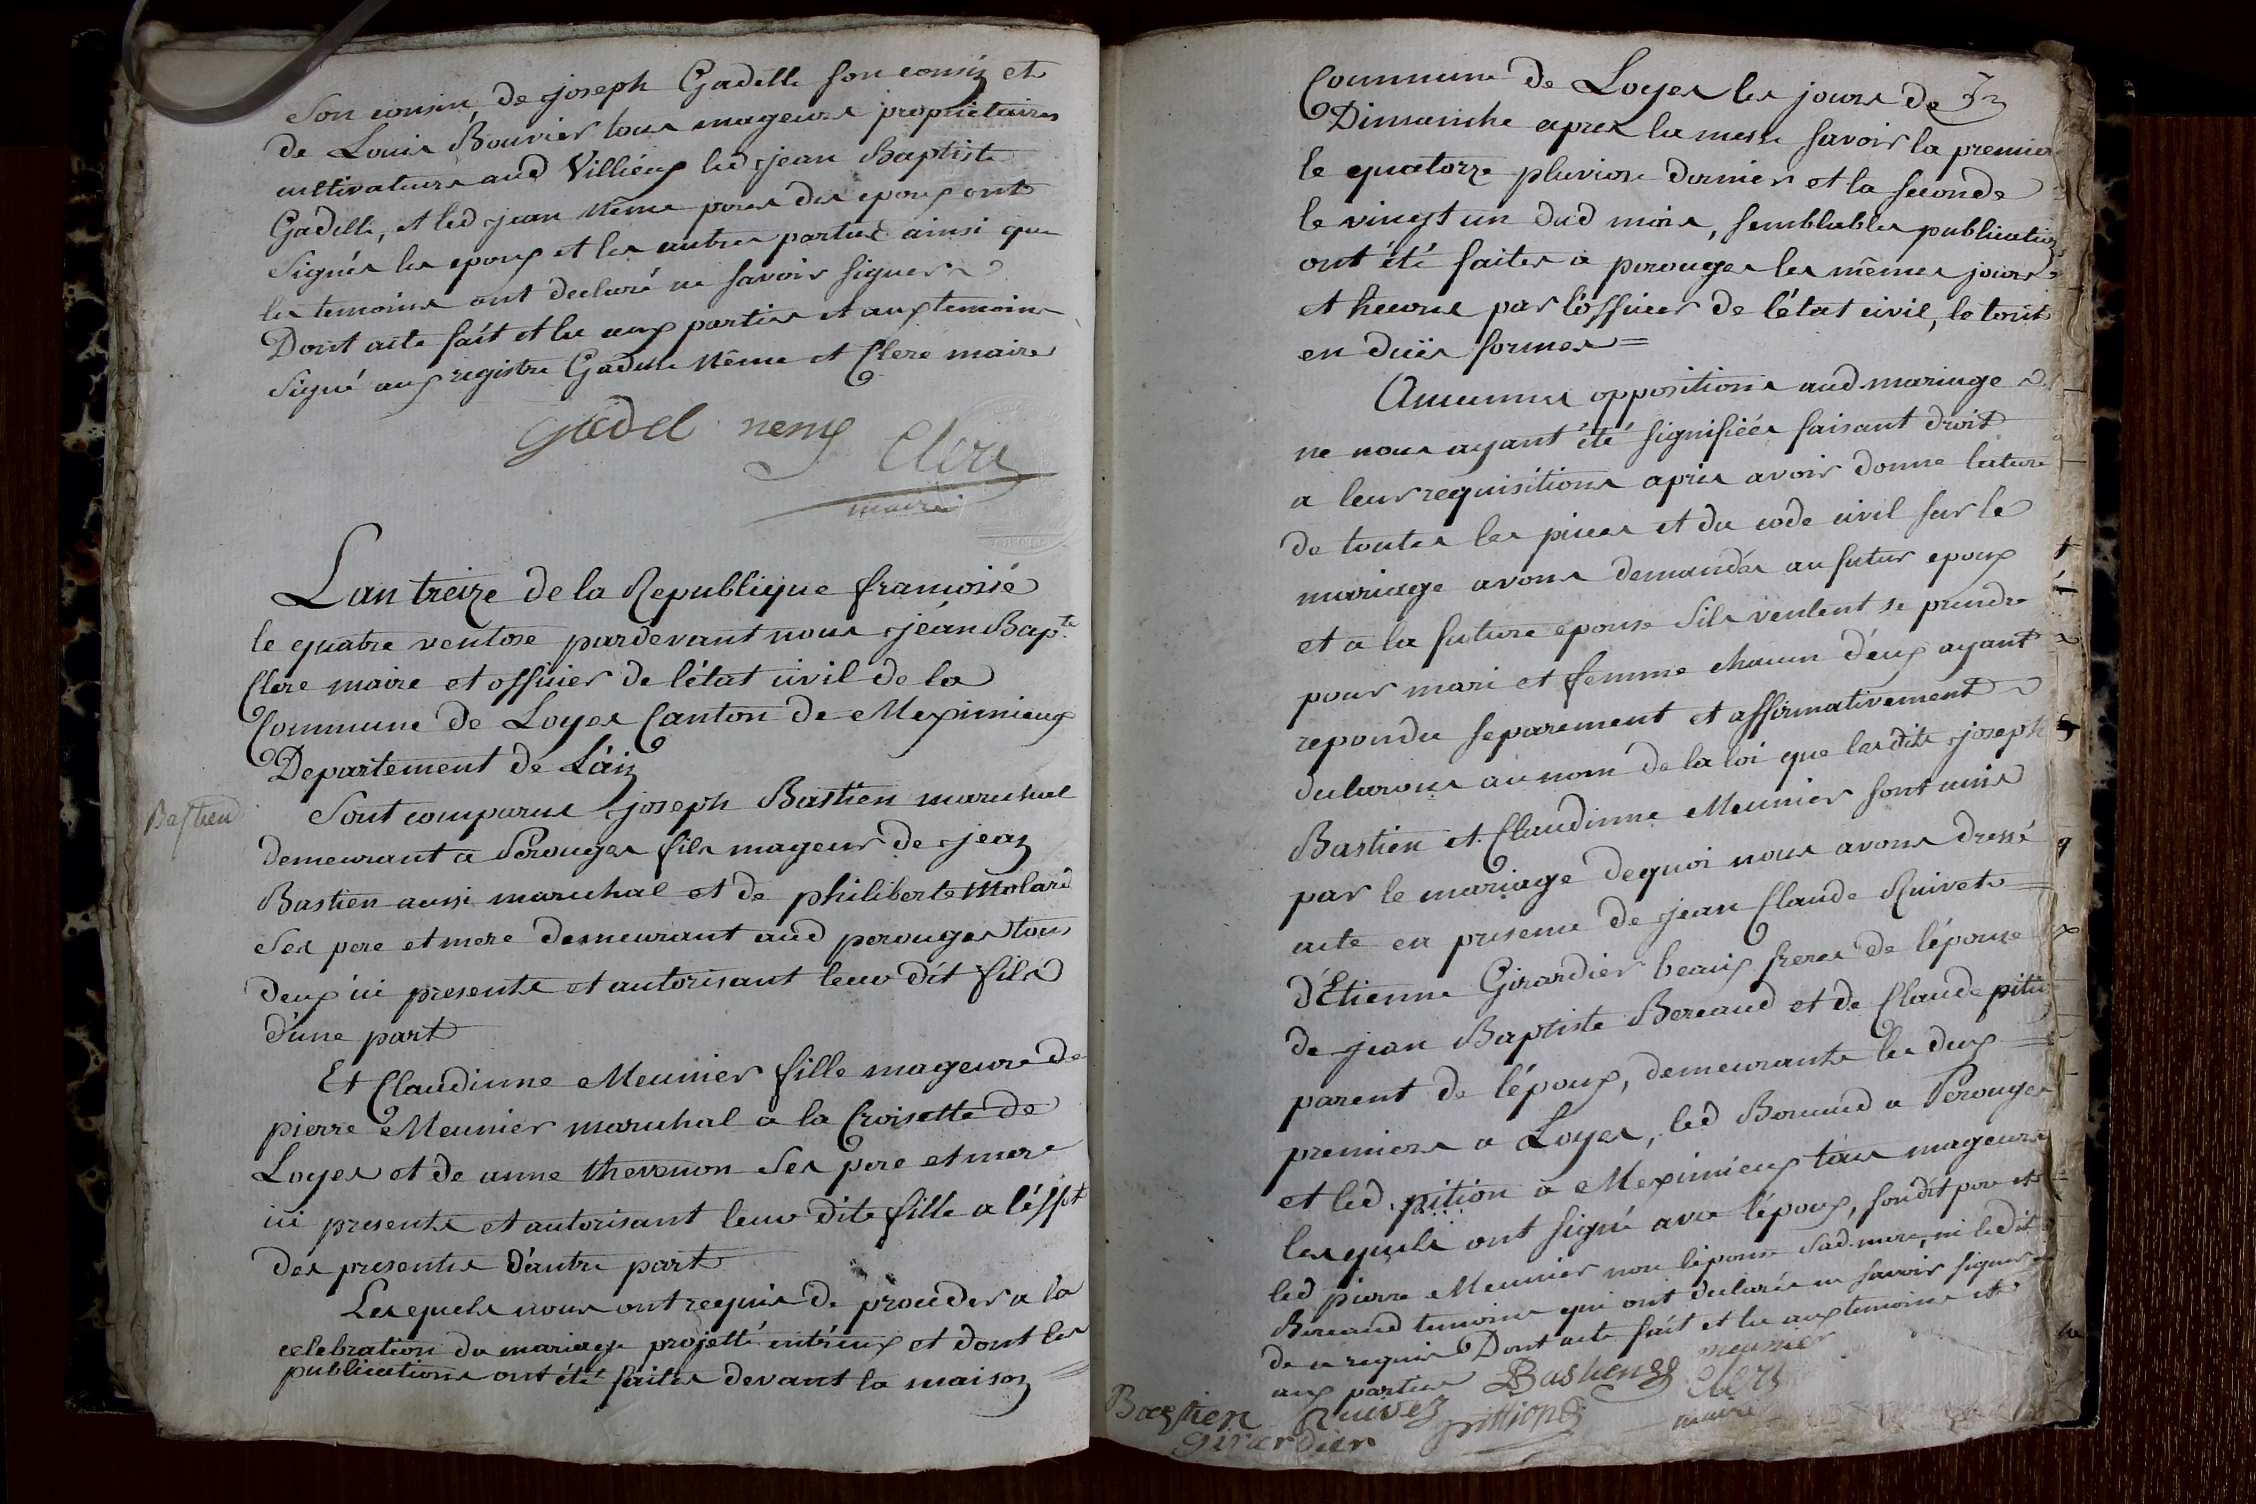 Son cousin, de joseph Gadelle son cousin et
de Louis Bouvier tous mageurs propriétaires
cultivateurs aud Villieux led jean Baptiste
Gadelle, et led jean Néme peres des epoux ont
Signés les epoux et les autres parties ainsi que
les temoins ont declaré ne savoir signer
Dont acte fait et lu aux parties et aux temoins
Signé aux registre Gadelle Néme et Clerc maire
Gadel nemy
Clerc
maire
Lan treize de la Republique francoise
le quatre ventose pardevant nous jéan Bap.te
Clerc maire et officier de l'état civil de la
Commune de Loyes Canton de Meximieux
Departement de L'ain
Bastien
Sont comparus joseph Bastien marechal
demeurant a Perouges fils mageur de jean
Bastien aussi marechal et de philiberte Molard
Ses pere et mere demeurant aud perouges tous
deux ici presents et autorisant leur dit fils
d'une part
Et Claudinne Meunier fille mageure de
pierre Meunier marechal a la Croisette de
Loyes et de anne thevenon Ses pere et mere
ici presents et autorisant leur dite fille a l'éffet
des presentes d'autre part
Lesquels nous ont requis de proceder a la
celebration du mariage projetté entr'eux et dont les
publications ont été faites devant la maison
Commune de Loyes les jours de
Dimanche apres la messe savoir la premiere
le quatorze pluviose dernier et la seconde
le vingt un dud mois, semblables publications
ont été faites a perouges les mêmes jours
et heures par l'officier de l'état civil, le tout
en duës formes =
Aucunnes oppositions aud mariage
ne nous ayant été signifiées faisant droit
a leur requisitions apres avoir donne lecture
de toutes les pieces et du code civil sur le
mariage avons demandés au futur epoux
et a la future epouse s'ils veulent se prendre
pour mari et femme chacun d'eux ayant
repondu separement et affirmativement
declarons au nom de la loi que lesdits joseph
Bastien et Claudinne Meunier sont unis
par le mariage dequoi nous avons dressé
acte en presence de jean Claude Quivet =
d'Etienne Girardier beaux freres de l'épouse
de jean Baptiste Bereaud et de Claude pition
parent de l'époux, demeurants les deux =
premiers a Loyes, led Bereaud a Perouges
et led. pition a Meximieux tous mageurs
lesquels ont signé avec l'époux, sondit pere et
led pierre Meunier non l'épouse sad. mere, ni ledit
Bereaud temoins qui ont declarés ne savoir signer
de ce requis Dont acte fait et lu aux temoins et
aux parties Bastien meunier
Bastien Quivez pittion Clerc
Girardier maire